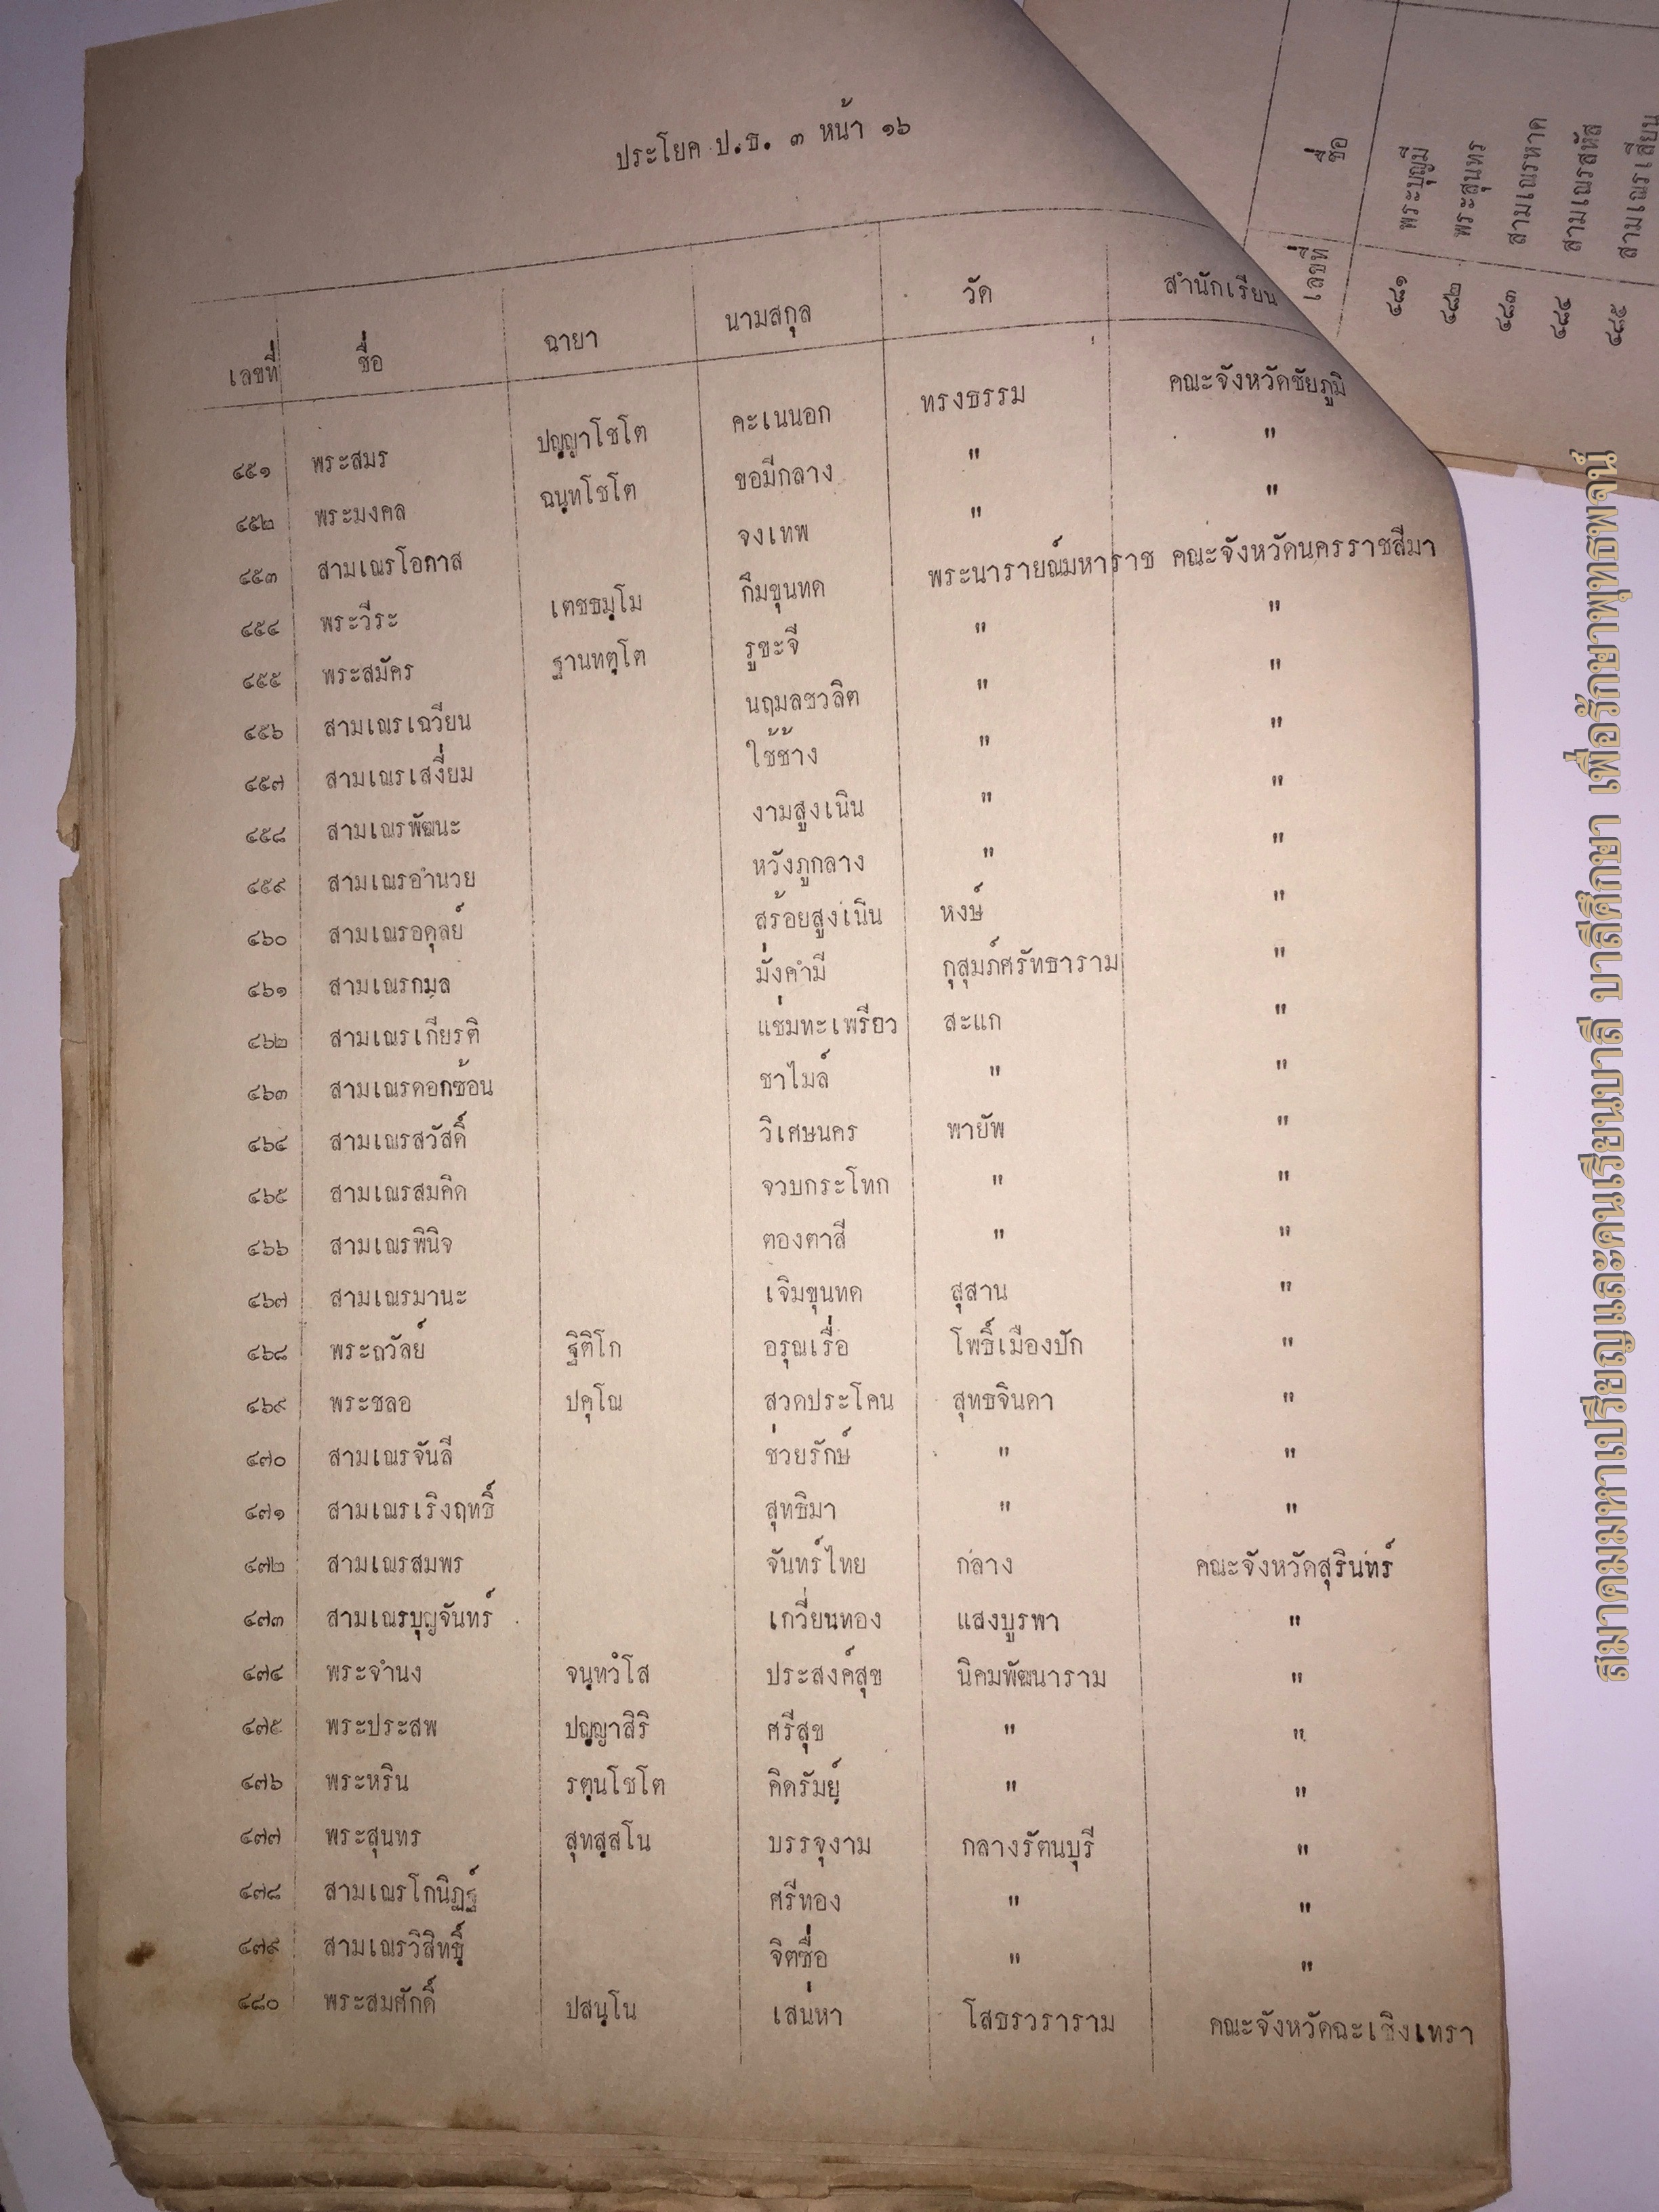 ประโยค ป.ธ. ๓ หน้า ๑๖
เลขที่ ชื่อ ฉายา นามสกุล วัด สำนักเรียน
๔๕๑ พระสมร ปญฺญาโชโต คะเนนอก ทรงธรรม คณะจังหวัดชัยภูมิ
๔๕๒ พระมงคล ฉนฺทโชโต ขอมีกลาง " "
๔๕๓ สามเณรโอภาส จงเทพ " "
๔๕๔ พระวีระ เตชธมฺโม กิมขุนทด พระนารายณ์มหาราช คณะจังหวัดนครราชสีมา
๔๕๕ พระสมัคร ฐานทตฺโต รูขะจี " "
๔๕๖ สามเณรเฉวียน นฤมลชวลิต " "
๔๕๗ สามเณรเสงี่ยม ใช้ช้าง " "
๔๕๘ สามเณรพัฒนะ งามสูงเนิน " "
๔๕๙ สามเณรอำนวย หวังภูกลาง " "
๔๖๐ สามเณรอดุลย์ สร้อยสูงเนิน หงษ์ "
๔๖๑ สามเณรกมล มั่งคำมี กุสุมภ์ศรัทธาราม "
๔๖๒ สามเณรเกียรติ แช่มทะเพรียว สะแก "
๔๖๓ สามเณรดอกซ้อน ชาไมล์ " "
๔๖๔ สามเณรสวัสดิ์ วิเศษนคร พายัพ "
๔๖๕ สามเณรสมคิด จวบกระโทก " "
๔๖๖ สามเณรพินิจ ตองตาสี " "
๔๖๗ สามเณรมานะ เจิมขุนทด สุสาน "
๔๖๘ พระถวัลย์ ฐิติโก อรุณเรื่อ โพธิ์เมืองปัก "
๔๖๙ พระชลอ ปคุโณ สวดประโคน สุทธจินดา "
๔๗๐ สามเณรจันลี ช่วยรักษ์ " "
๔๗๑ สามเณรเริงฤทธิ์ สุทธิมา " "
๔๗๒ สามเณรสมพร จันทร์ไทย กลาง คณะจังหวัดสุรินทร์
๔๗๓ สามเณรบุญจันทร์ เกวี่ยนทอง แสงบูรพา "
๔๗๔ พระจำนง จนฺทวํโส ประสงค์สุข นิคมพัฒนาราม "
๔๗๕ พระประสพ ปญฺญาสิริ ศรีสุข " "
๔๗๖ พระหริน รตฺนโชโต คิดรัมย์ " "
๔๗๗ พระสุนทร สุทสฺสโน บรรจุงาม กลางรัตนบุรี "
๔๗๘ สามเณรโกนิฏฐ์ ศรีทอง " "
๔๗๙ สามเณรวิสิทธิ์ จิตซื่อ " "
๔๘๐ พระสมศักดิ์ ปสนฺโน เสน่หา โสธรวราราม คณะจังหวัดฉะเชิงเทรา
เลขที่ ชื่อ
๔๘๑ พระบุญมี
๔๘๒ พระสุนทร
๔๘๓ สามเณรหาด
๔๘๔ สามเณรสหัส
๔๘๕ สามเณรเสียน
สมาคมมหาเปรียญและคนเรียนบาลี บาลีศึกษา เพื่อรักษาพุทธพจน์